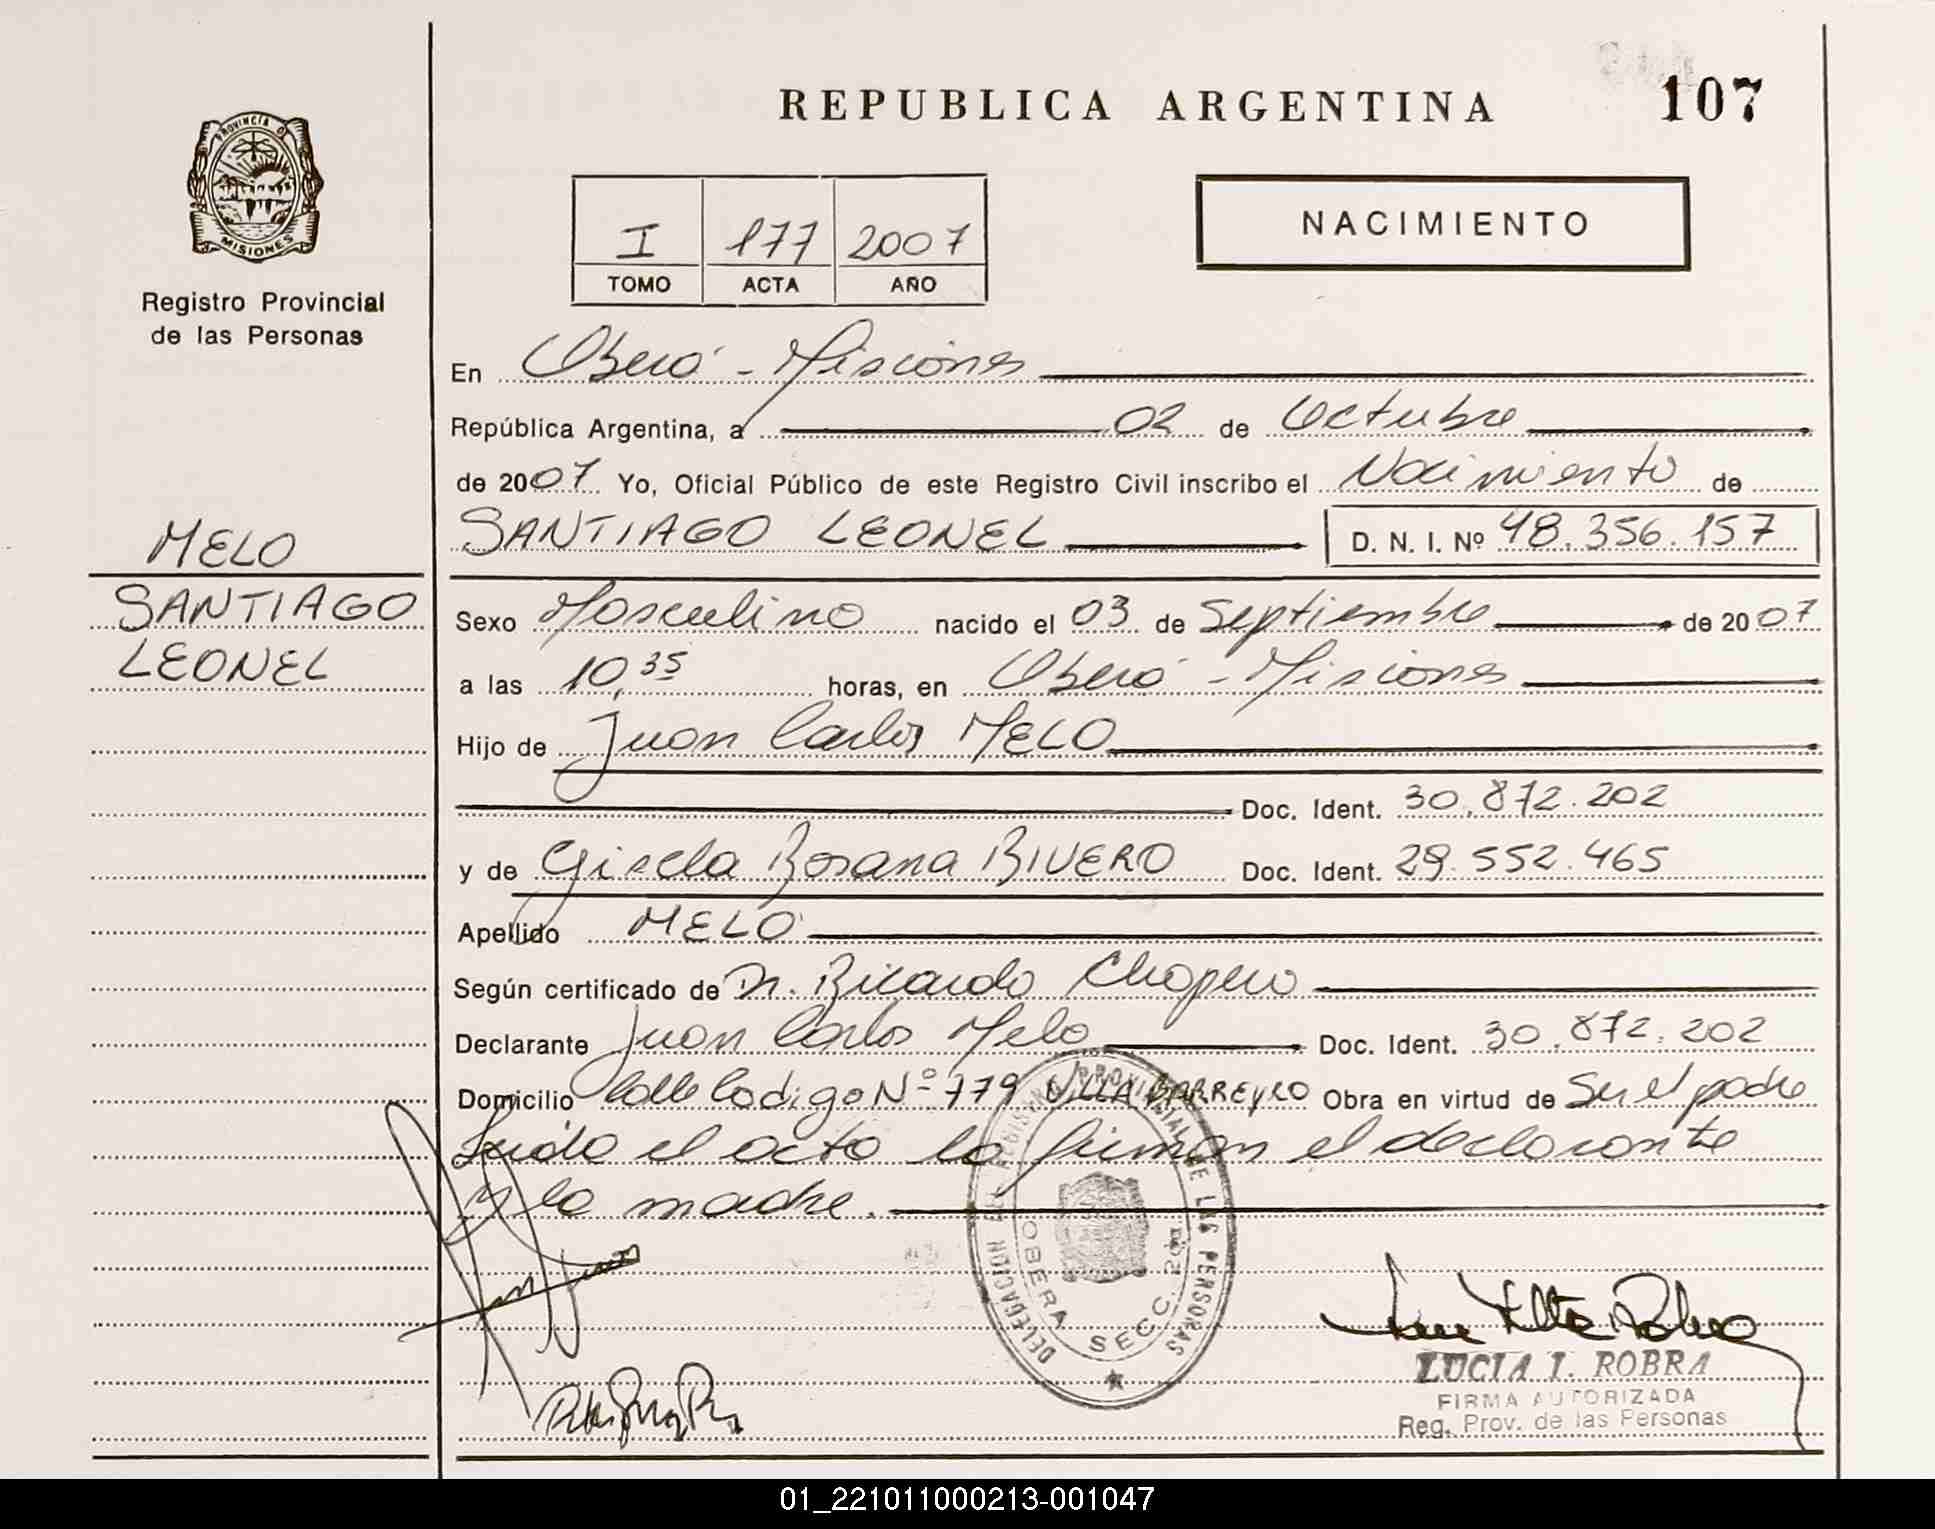 107
REPUBLICA ARGENTINA
PROVINCIA DE
MISIONES
Registro Provincial
de las Personas
NACIMIENTO
I 177 2007
TOMO ACTA AÑO
En Oberá - Misiones
República Argentina, a 02 de Octubre
de 2007 Yo, Oficial Público de este Registro Civil inscribo el Nacimiento de
SANTIAGO LEONEL D. N. I. Nº 48.356.157
MELO
SANTIAGO
LEONEL
Sexo Masculino nacido el 03 de Septiembre de 2007
a las 10,35 horas, en Oberá - Misiones
Hijo de Juan Carlos MELO
Doc. Ident. 30.872.202
y de Gisela Rosana RIVERO Doc. Ident. 29.552.465
Apellido MELO
Según certificado de Dr. Ricardo Chapero
Declarante Juan Carlos Melo Doc. Ident. 30.872.202
Domicilio Calle Codigo Nº 779 VILLA BARREYRO Obra en virtud de Ser el padre
Leida el acta la firman el declarante
y la madre.
DELEGACION DEL REGISTRO PROVINCIAL DE LAS PERSONAS
OBERA SECC. 2da
LUCIA I. ROBRA
FIRMA AUTORIZADA
Reg. Prov. de las Personas
01_221011000213-001047